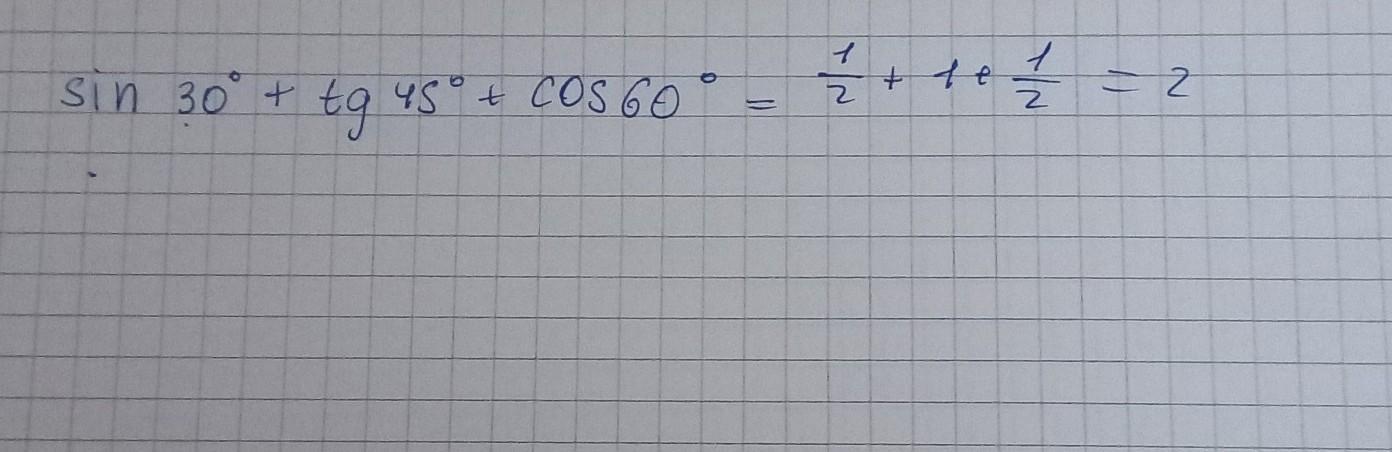 sin 30° + tg 45° + cos 60° = 1/2 + 1 + 1/2 = 2